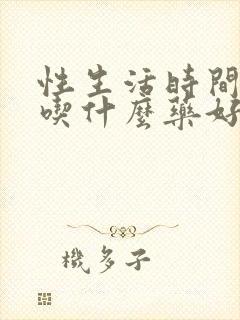 性生活時間
喫什麼藥好
機多子